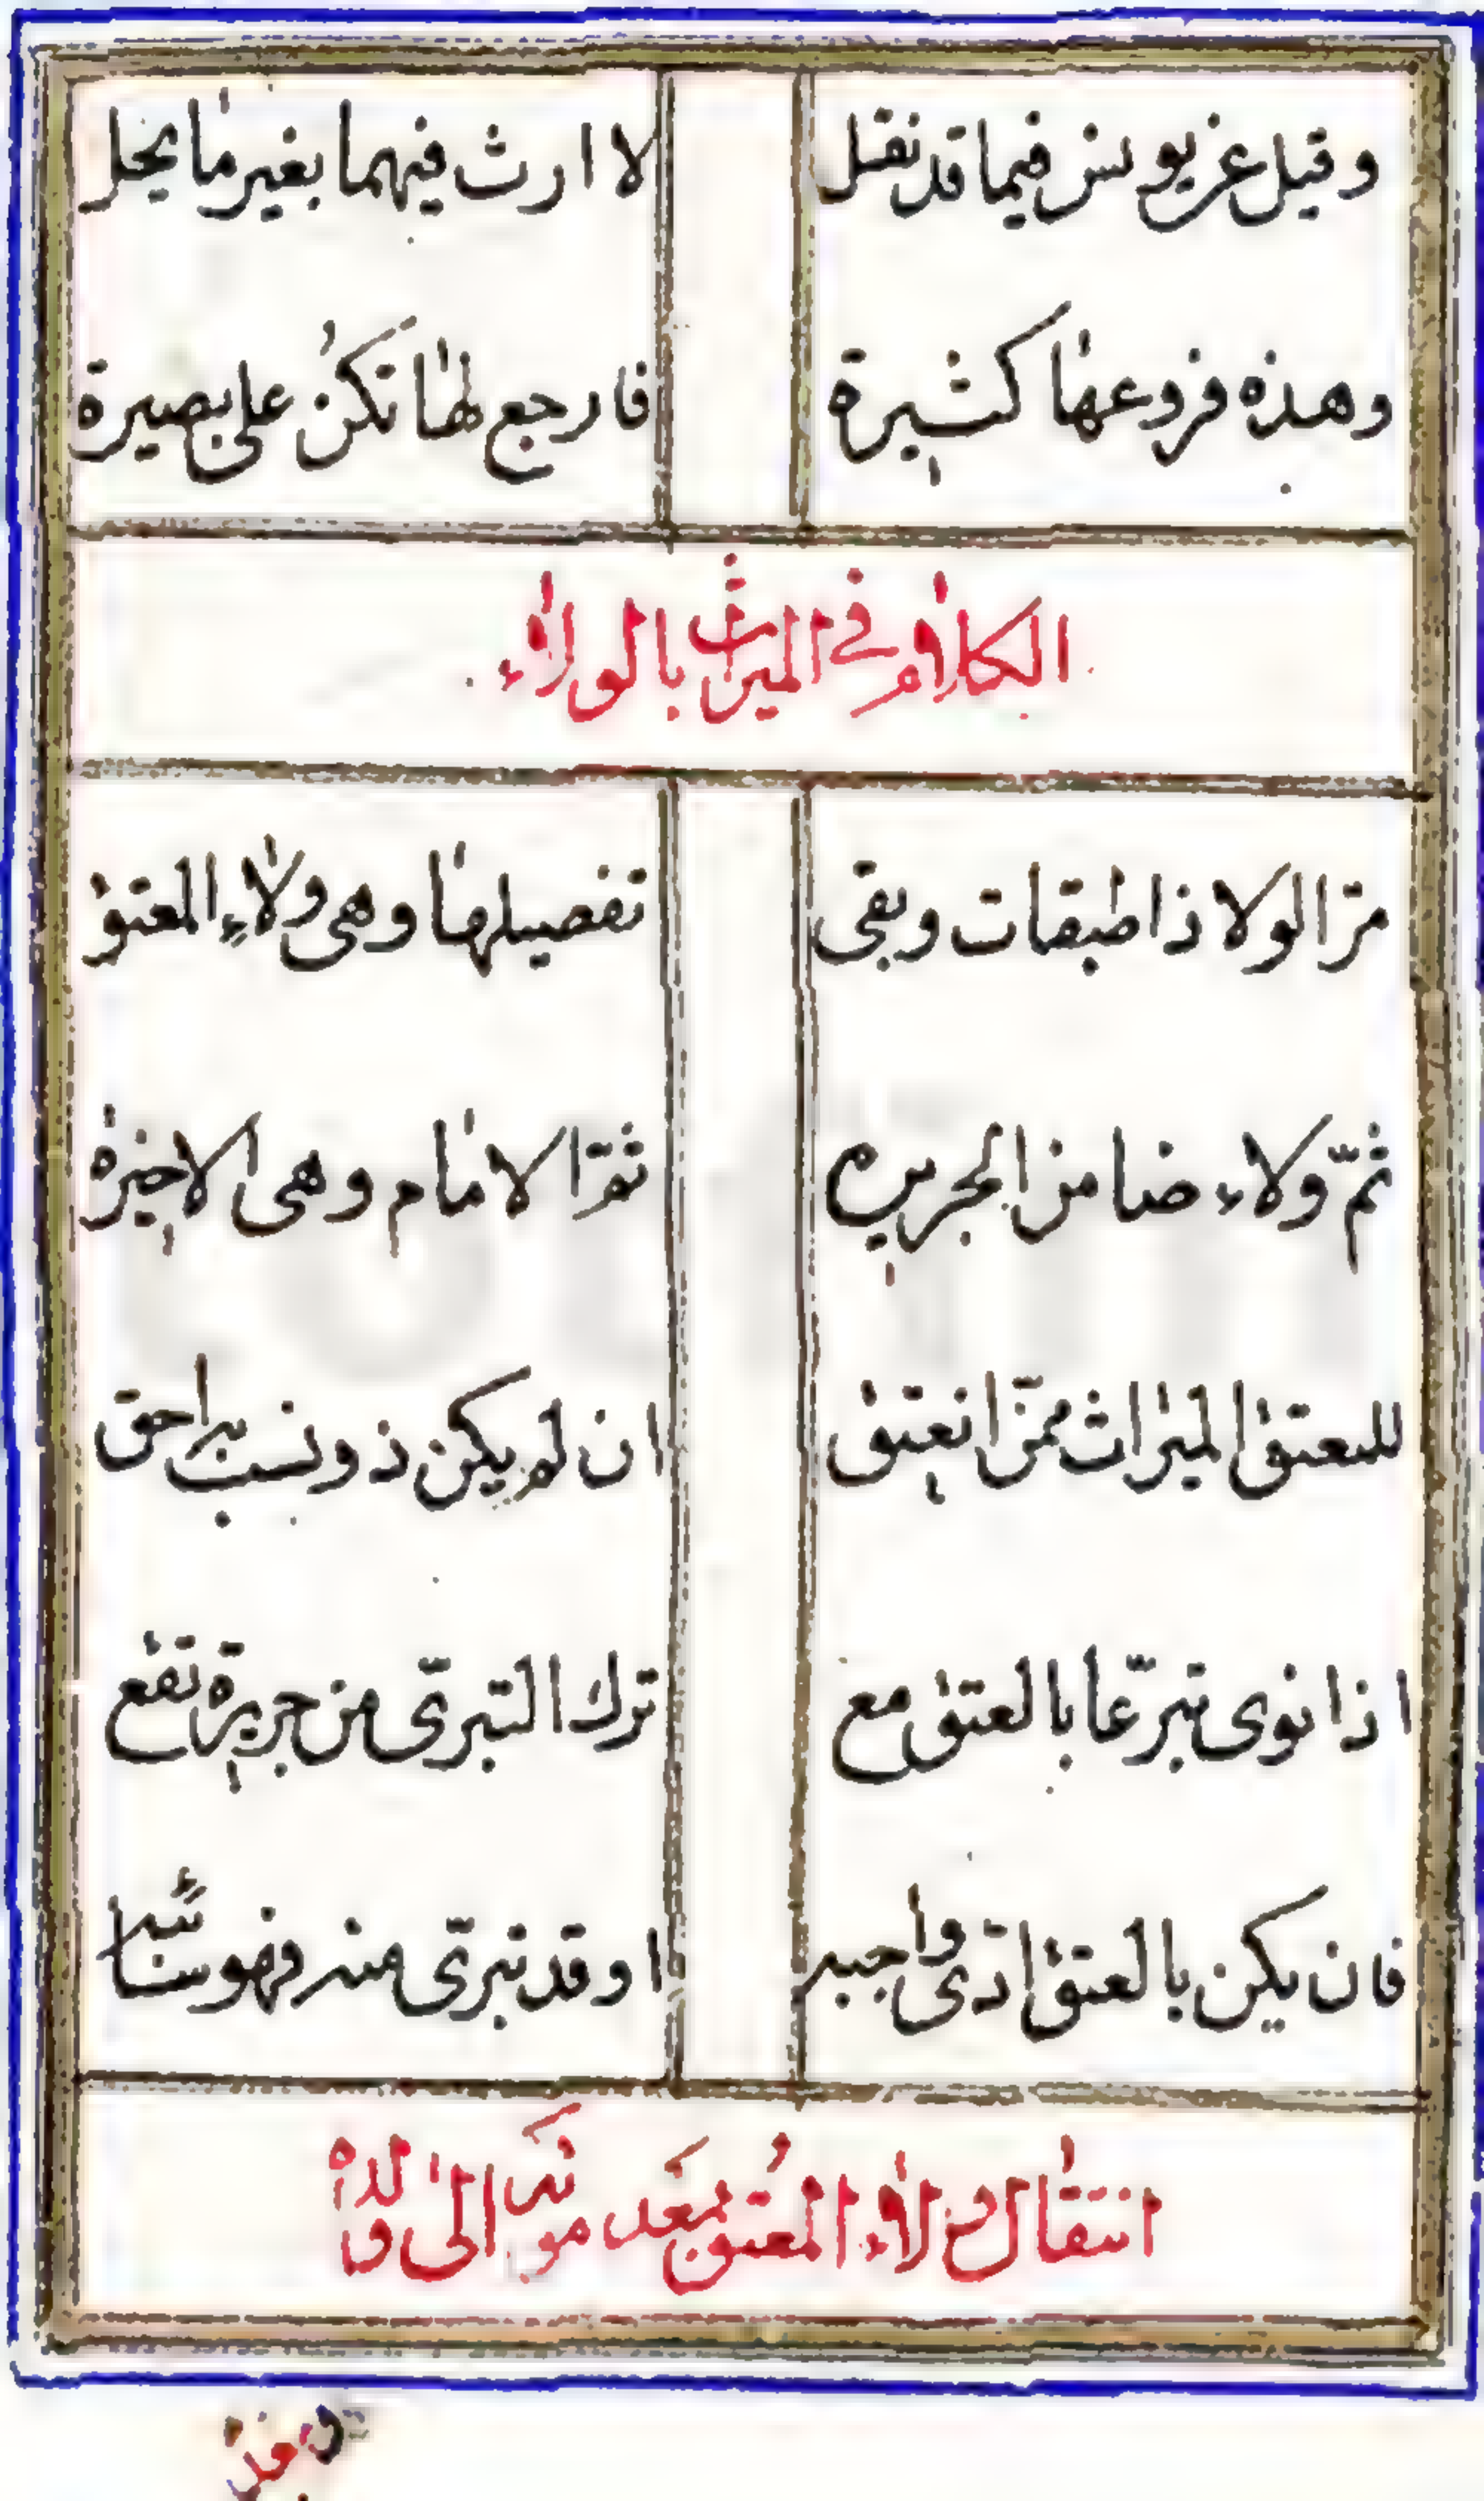 وقيل عن يونس فيما قد نقل لا ارث فيهما بغير ما يحل
وهذه فروعها كثيرة فارجع لها تكن على بصيرة
الكلام في الميراث بالولاء
مرّ الولا ذا طبقات وبقى تفصيلها وهى ولاءِ المعتق
ثمّ ولاء ضامن الجريره ثمّ الامام وهى الاخيره
للمعتق الميراث ممّن انعتق ان لم يكن ذو نسب به احق
اذا نوى تبرّعا بالعتق مع ترك التبرّى من جريرة تقع
فان يكن بالعتق ادّى واجبه او قد تبرّى منه فهو سائبه
انتقال ولاء المعتق بعد موته الى ولده
وبعد